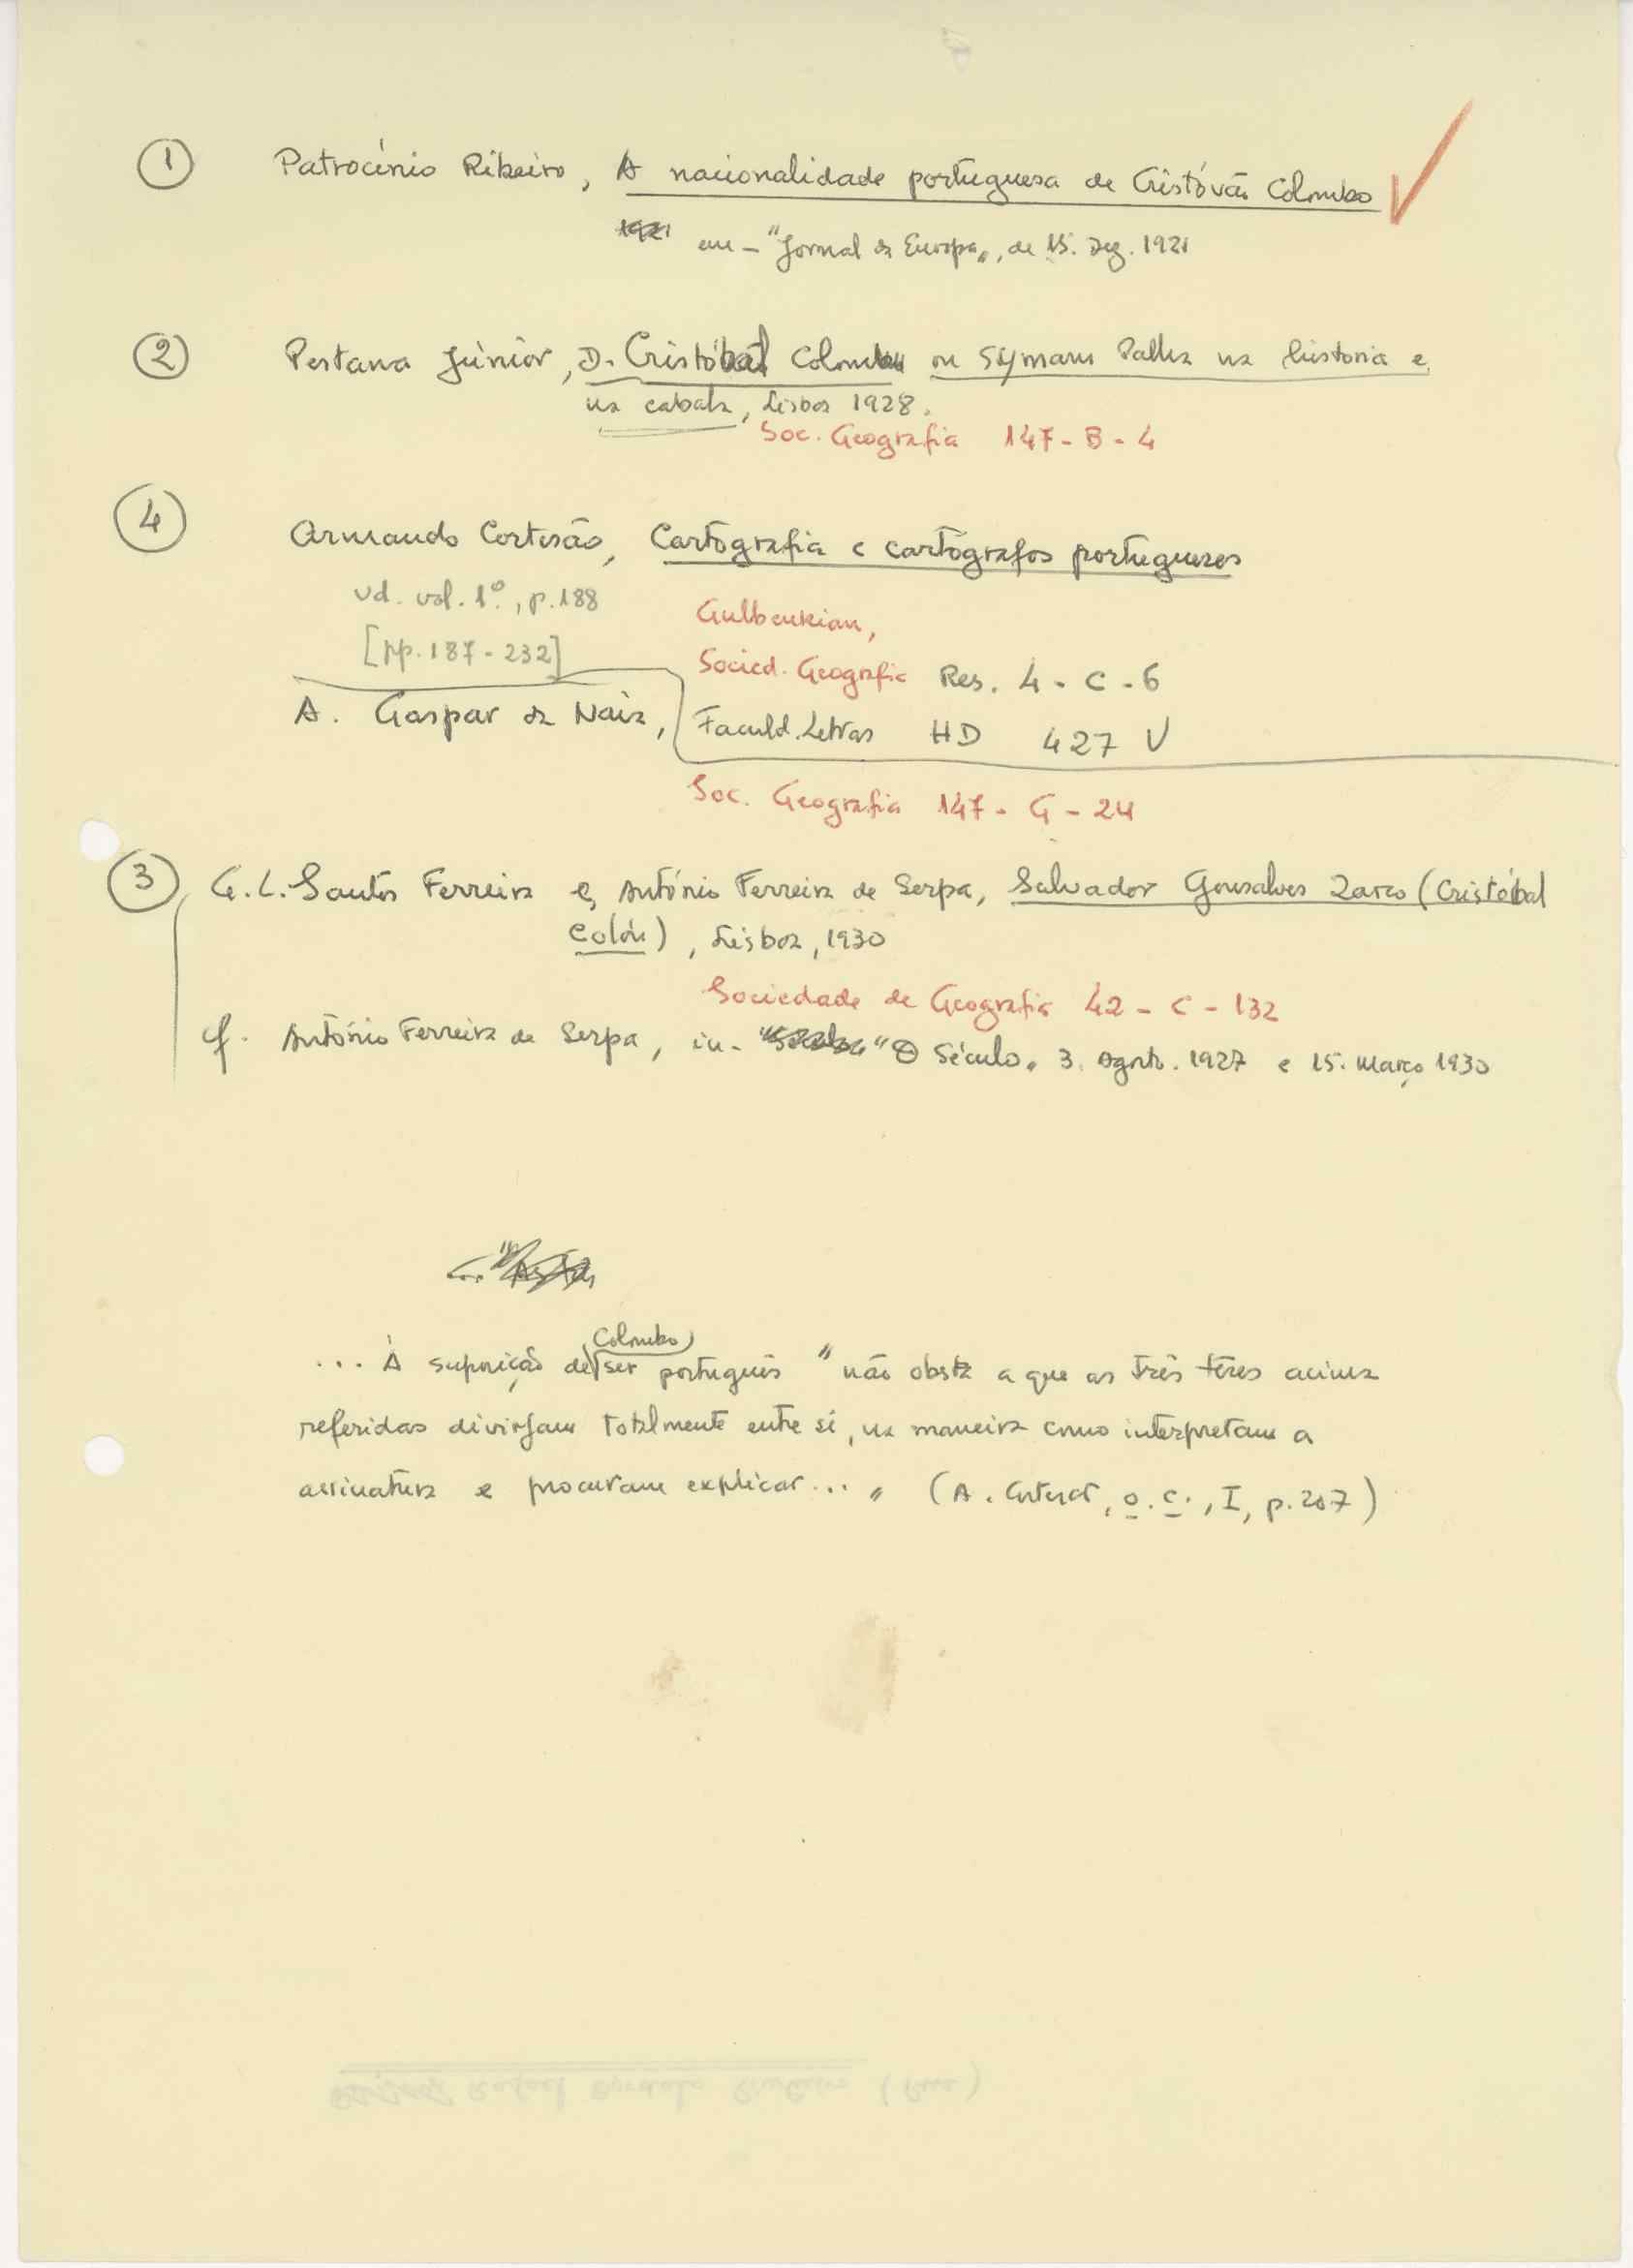 ① Patrocínio Ribeiro, A nacionalidade portuguesa de Cristóvão Colombo
1921 em - "Jornal da Europa", de 15. Dez. 1921
② Pestana Júnior, D. Cristóbal Colombo ou Symam Palha na história e
na cabala, Lisboa 1928.
Soc. Geografia 147 - B - 4
④ Armando Cortesão, Cartografia e cartógrafos portugueses
vd. vol. 1º., p. 188
Gulbenkian,
[pp. 187 - 232]
Socied. Geografia Res. 4 - C - 6
A. Gaspar da Naia,
Faculd. Letras HD 427 V
Soc. Geografia 147 - G - 24
③ G. L. Santos Ferreira e António Ferreira de Serpa, Salvador Gonsalves Zarco (Cristóbal
Colón), Lisboa, 1930
Sociedade de Geografia 42 - C - 132
cf. António Ferreira de Serpa, in - "O Século" 3. Agosto. 1927 e 15. Março 1930
Colombo
... À suposição de ser português "não obsta a que as três teses acima
referidas divirjam totalmente entre si, na maneira como interpretam a
assinatura e procuram explicar ..." (A. Cortesão, o. c., I, p. 207)